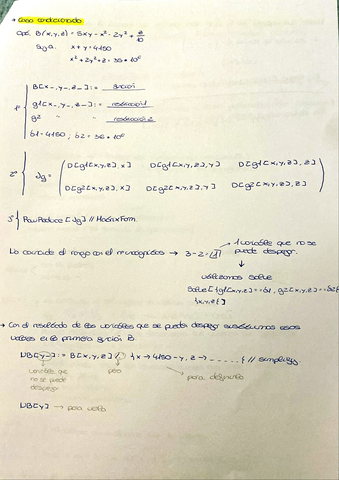 → Caso condicionado
Opt. B(x,y,z) = 5xy - x² - 2y² + z/10
s.y.a. x + y = 4150
x² + 2y² + z = 36 * 10⁶
1º B[x_, y_, z_] := función
g1[x_, y_, z_] := restricción 1
g2 " " restricción 2
b1 = 4150, b2 = 36 * 10⁶
2º Jg = ( D[g1[x,y,z], x] D[g1[x,y,z], y] D[g1[x,y,z], z]
D[g2[x,y,z], x] D[g2[x,y,z], y] D[g2[x,y,z], z] )
RowReduce[Jg] // MatrixForm
el rango con el → 3-2 = 1 → 1 variable que no se
puede despejar.
utilizamos Solve
Solve[{g1[x,y,z] == b1, g2[x,y,z] == b2}
{x,z}]
→ Con el resultado de las variables que se puede despejar sustituimos esos
valores en la primera función B
NB[y_] := B[x,y,z] /. {x → 4150 - y, z → ......} // Simplify
variables que
no se puede
despejar
para definirlo
NB[y] → para verlo